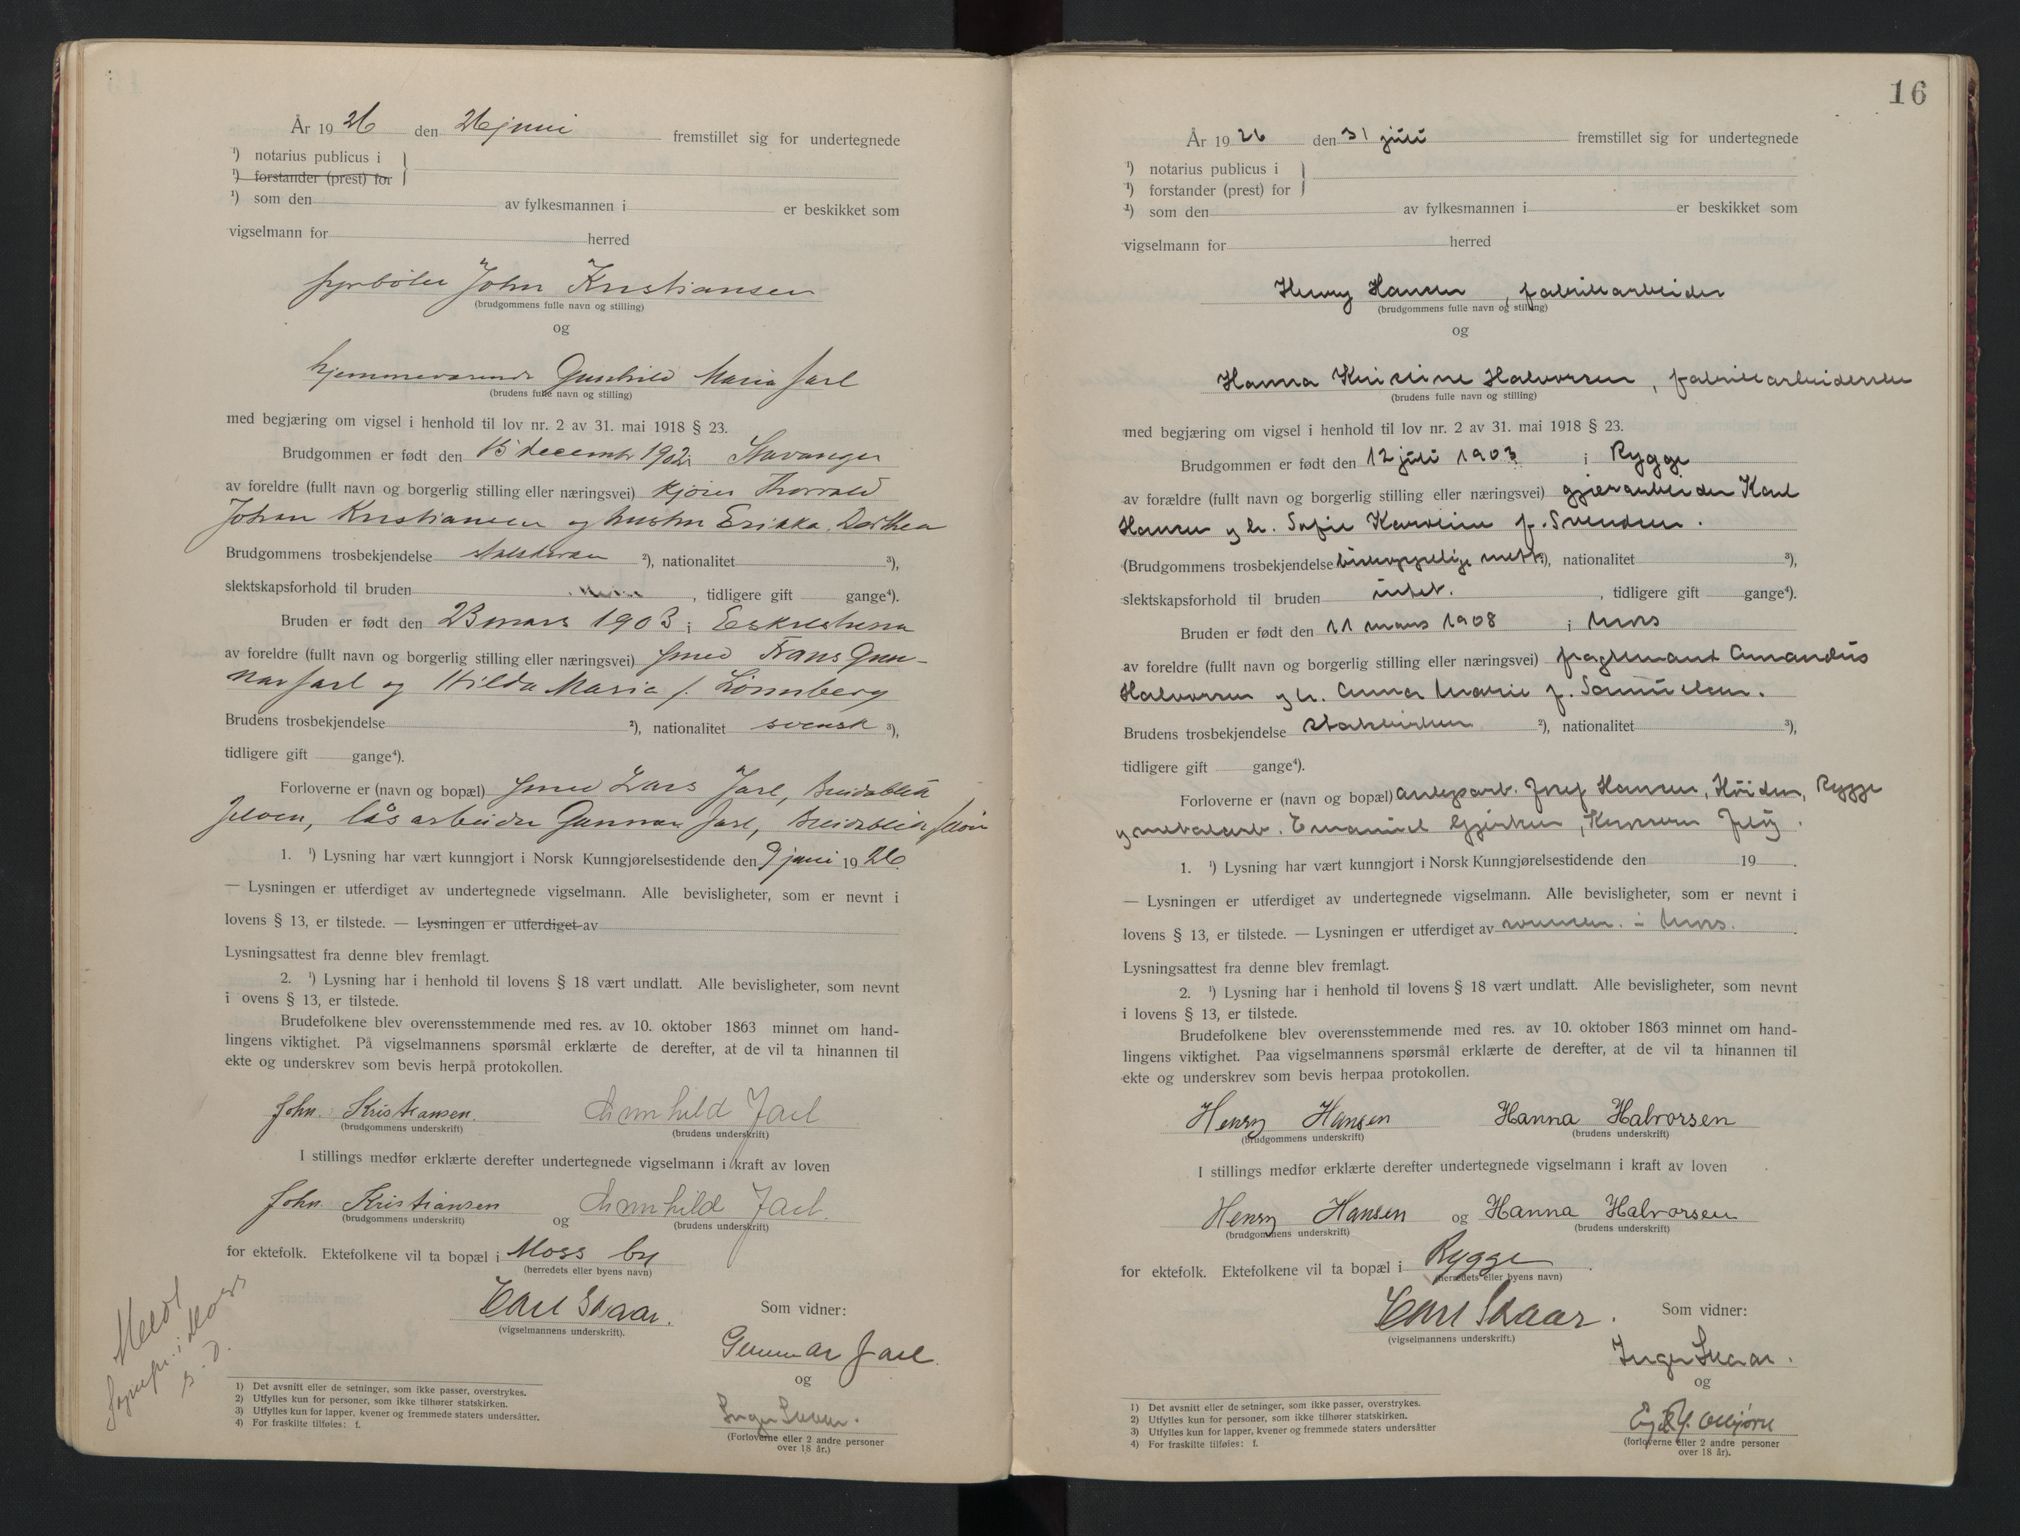 År 19 26 den 26 juni fremstillet sig for undertegnede
¹) notarius publicus i
¹) forstander (prest) for
¹) som den av fylkesmannen i er beskikket som
vigselmann for herred
fyrbøter John Kristiansen
(brudgommens fulle navn og stilling)
og
hjemmeværende Gunhild Maria Jarl
(brudens fulle navn og stilling)
med begjæring om vigsel i henhold til lov nr. 2 av 31. mai 1918 § 23.
Brudgommen er født den 15 decembr 1902 i Stavanger
av foreldre (fullt navn og borgerlig stilling eller næringsvei) Thorvald
Johan Kristiansen og hustru Erikka Dorthea
Brudgommens trosbekjendelse ²), nationalitet ³),
slektskapsforhold til bruden , tidligere gift gange⁴).
Bruden er født den 23 mars 1903 i Eskilstuna
av foreldre (fullt navn og borgerlig stilling eller næringsvei) smed Frans Gun-
nar Jarl og Hilda Maria f. Lönnberg
Brudens trosbekjendelse ²), nationalitet svensk ³),
tidligere gift gange⁴).
Forloverne er (navn og bopæl) smed Lars Jarl, Breidablik
Jeløen, låsarbeider Gunnar Jarl, Breidablik Jeløen
1. ¹) Lysning har vært kunngjort i Norsk Kunngjørelsestidende den 9 juni 1926.
— Lysningen er utferdiget av undertegnede vigselmann. Alle bevisligheter, som er nevnt i
lovens § 13, er tilstede. — Lysningen er utferdiget av
Lysningsattest fra denne blev fremlagt.
2. ¹) Lysning har i henhold til lovens § 18 vært undlatt. Alle bevisligheter, som nevnt
i ovens § 13, er tilstede.
Brudefolkene blev overensstemmende med res. av 10. oktober 1863 minnet om hand-
lingens viktighet. På vigselmannens spørsmål erklærte de derefter, at de vil ta hinannen til
ekte og underskrev som bevis herpå protokollen.
John Kristiansen. Gunhild Jarl
(brudgommens underskrift) (brudens underskrift)
I stillings medfør erklærte derefter undertegnede vigselmann i kraft av loven
John Kristiansen og Gunhild Jarl.
(brudgommens underskrift) (brudens underskrift)
for ektefolk. Ektefolkene vil ta bopæl i Moss by
(herredets eller byens navn)
Carl Skaar. Som vidner:
(vigselmannens underskrift).
Gunnar Jarl.
og
Inger Skaar.
(Forloverne eller 2 andre personer
over 18 år.)
Meldt
Sognepr. i Moss
s. d.
1) Det avsnitt eller de setninger, som ikke passer, overstrykes.
2) Utfylles kun for personer, som ikke tilhører statskirken.
3) Utfylles kun for lapper, kvener og fremmede staters undersåtter.
4) For fraskilte tilføies: f.
16
År 19 26 den 31 juli fremstillet sig for undertegnede
¹) notarius publicus i
¹) forstander (prest) for
¹) som den av fylkesmannen i er beskikket som
vigselmann for herred
Henry Hansen, fabrikkarbeider
(brudgommens fulle navn og stilling)
og
Hanna Kristine Halvorsen, fabrikkarbeiderske
(brudens fulle navn og stilling)
med begjæring om vigsel i henhold til lov nr. 2 av 31. mai 1918 § 23.
Brudgommen er født den 12 juli 1903 i Rygge
av forældre (fullt navn og borgerlig stilling eller næringsvei) Karl
Hansen og h. Sofie f. Svendsen.
(Brudgommens trosbekjendelse ²), nationalitet ³),
slektskapsforhold til bruden intet. , tidligere gift gange⁴).
Bruden er født den 11 mars 1908 i Moss
av foreldre (fullt navn og borgerlig stilling eller næringsvei) Amandus
Halvorsen og h. Anna Marie f. Samuelsen.
Brudens trosbekjendelse statskirken ²), nationalitet ³),
tidligere gift gange⁴).
Forloverne er (navn og bopæl) Josef Hansen, Höiden, Rygge
og metalarb. Emanuel Jeløy.
1. ¹) Lysning har vært kunngjort i Norsk Kunngjørelsestidende den 19 .
— Lysningen er utferdiget av undertegnede vigselmann. Alle bevisligheter, som er nevnt i
lovens § 13, er tilstede. — Lysningen er utferdiget av i Moss.
Lysningsattest fra denne blev fremlagt.
2. ¹) Lysning har i henhold til lovens § 18 vært undlatt. Alle bevisligheter, som nevnt
i lovens § 13, er tilstede.
Brudefolkene blev overensstemmende med res. av 10. oktober 1863 minnet om hand-
lingens viktighet. Paa vigselmannens spørsmål erklærte de derefter, at de vil ta hinannen til
ekte og underskrev som bevis herpaa protokollen.
Henry Hansen Hanna Halvorsen
(brudgommens underskrift) (brudens underskrift)
I stillings medfør erklærte derefter undertegnede vigselmann i kraft av loven
Henry Hansen og Hanna Halvorsen
(brudgommens underskrift) (brudens underskrift)
for ektefolk. Ektefolkene vil ta bopæl i Rygge.
(herredets eller byens navn)
Carl Skaar. Som vidner:
(vigselmannens underskrift.)
Inger Skaar.
og
(forloverne eller 2 andre personer
over 18 år).
1) Det avsnitt eller de setninger, som ikke passer, overstrykes.
2) Utfylles kun for personer, som ikke tilhører statskirken.
3) Utfylles kun for lapper, kvener og fremmede staters undersåtter
4) For fraskilte tilføies: f.